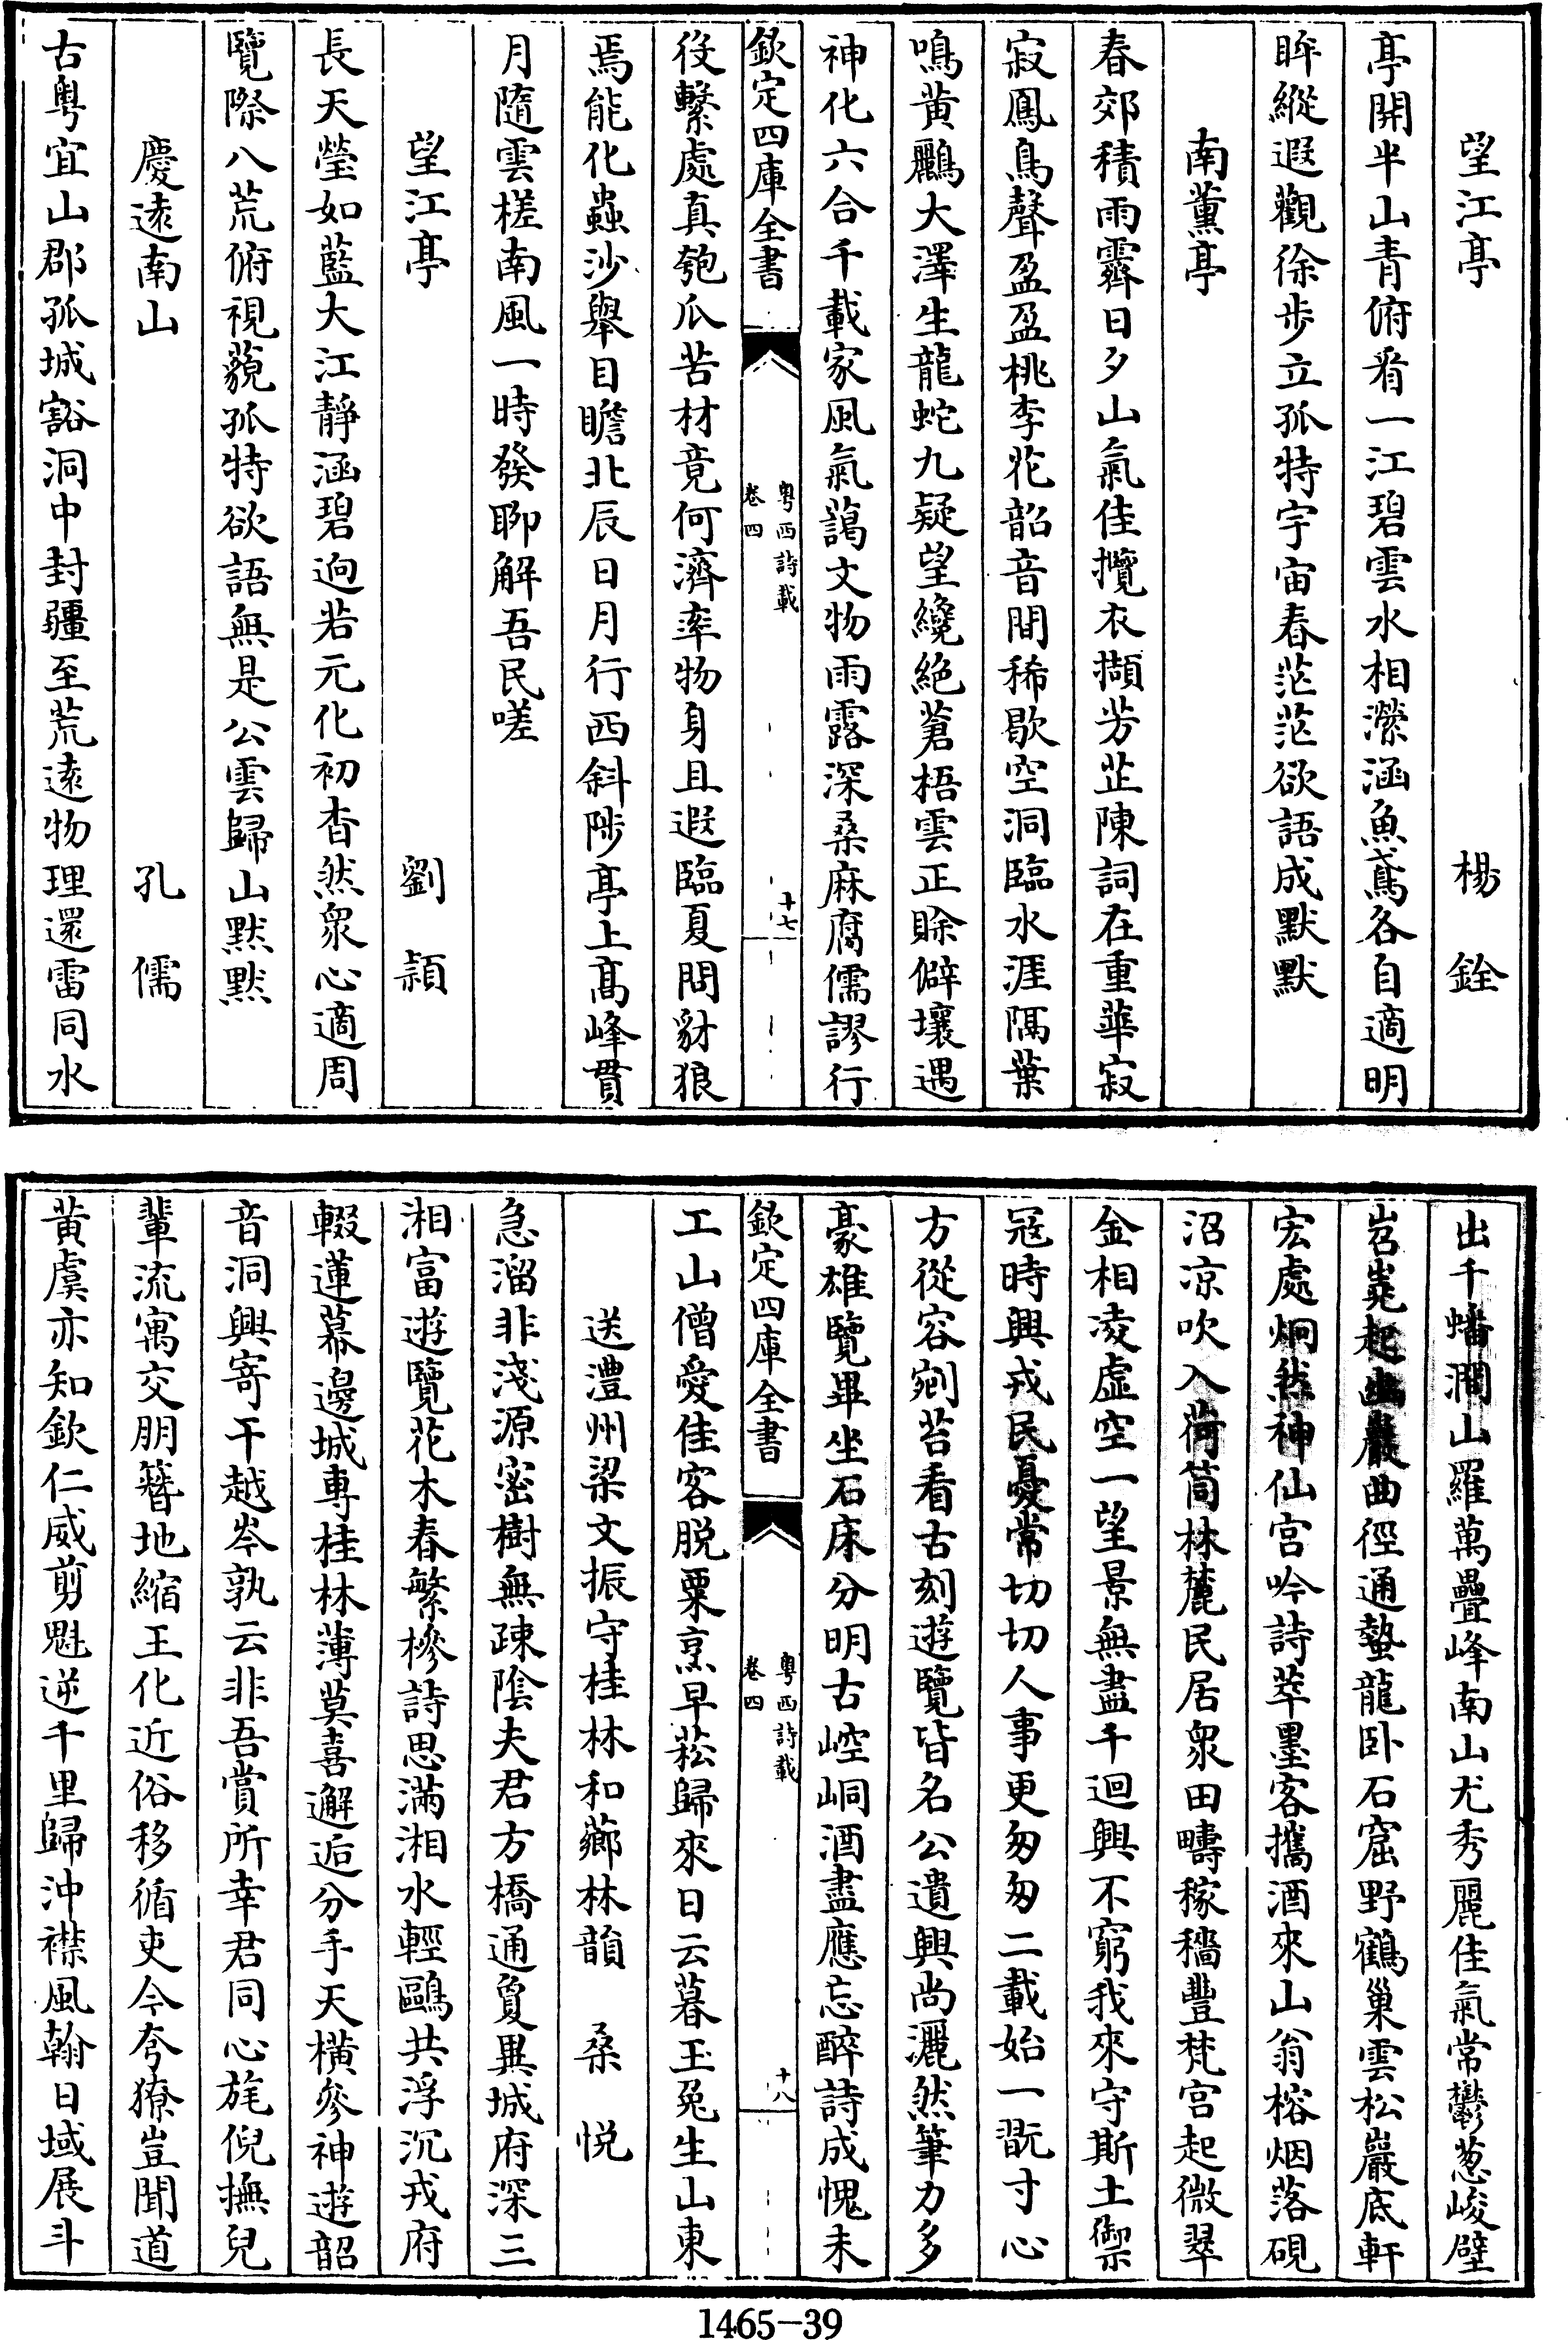 望江亭　楊　銓
亭開半山青俯看一江碧雲水相瀠涵魚鳶各自適明
眸縱遐觀徐步立孤特宇宙春茫茫欲語成默默
南薰亭
春郊積雨霽日夕山氣佳攬衣擷芳芷陳詞在重華寂
寂鳳鳥聲盈盈桃李花韶音間稀歇空洞臨水涯隔葉
鳴黃鸝大澤生龍蛇九疑望纔絕蒼梧雲正賖僻壤遇
神化六合千載家風氣藹文物雨露深桑麻腐儒謬行
欽定四庫全書
粵西詩載
卷四
十七
役繫處真匏瓜苦材竟何濟率物身且遐臨夏問豺狼
焉能化蟲沙舉目瞻北辰日月行西斜陟亭上高峰貫
月隨雲槎南風一時發聊解吾民嗟
望江亭　劉　頴
長天瑩如藍大江靜涵碧逈若元化初杳然衆心適周
覽際八荒俯視藐孤特欲語無是公雲歸山黙黙
慶遠南山　孔　儒
古粤宜山郡孤城谿洞中封疆至荒遠物理還雷同水
出千蟠澗山羅萬疊峰南山尤秀麗佳氣常鬱葱峻壁
岧嶤起幽巖曲徑通蟄龍卧石窟野鶴巢雲松巖底軒
宏處炯然神仙宫吟詩萃墨客攜酒來山翁榕烟落硯
沼凉吹入荷筒林麓民居衆田疇稼穡豐梵宫起微翠
金相凌虛空一望景無盡千迴興不窮我來守斯土禦
冦時興戎民憂常切切人事更匆匆二載始一翫寸心
方從容剜苔看古刻遊覽皆名公遺興尚灑然筆力多
豪雄覽畢坐石床分明古崆峒酒盡應忘醉詩成愧未
欽定四庫全書
粵西詩載
卷四
十八
工山僧愛佳客脱粟烹早菘歸來日云暮玉兎生山東
送澧州梁文振守桂林和薌林韻　桑　悅
急溜非淺源密樹無疎陰夫君方橋通質異城府深三
湘富遊覽花木春繁椮詩思滿湘水輕鷗共浮沉戎府
輟蓮幕邊城專桂林薄莫喜邂逅分手天横參神遊韶
音洞興寄干越岑孰云非吾賞所幸君同心旄倪撫兒
輩流寓交朋簪地縮王化近俗移循吏今夸獠豈聞道
黃虞亦知欽仁威剪魁逆千里歸沖襟風翰日域展斗
1465-39